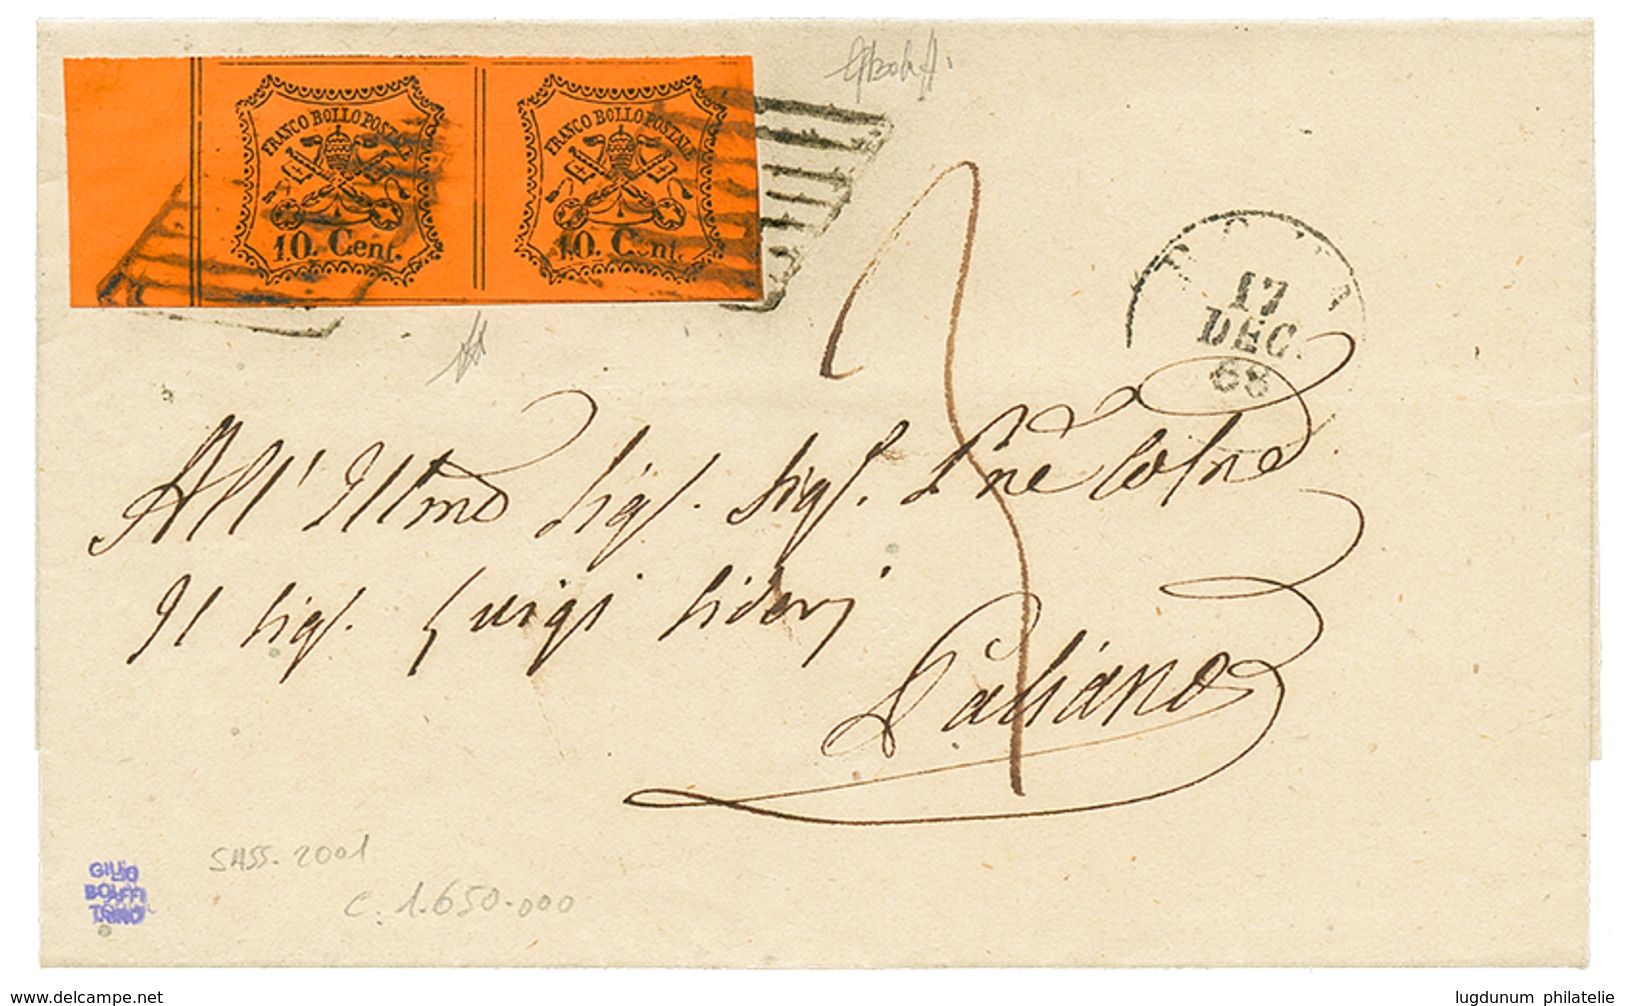 FRANCO BOLLO POSTALE
10. Cent.
FRANCO BOLLO POSTALE
10. Cent.
ROMA
17
DEC.
68
3
All' Illmo Sigr. Sigr. Pne Colmo
Il Sigr. Luigi Sideri
Paliano
SASS. 2001
C. 1.650.000
GIULIO
BOLAFFI
TORINO
© www.delcampe.net
lugdunum philatelie